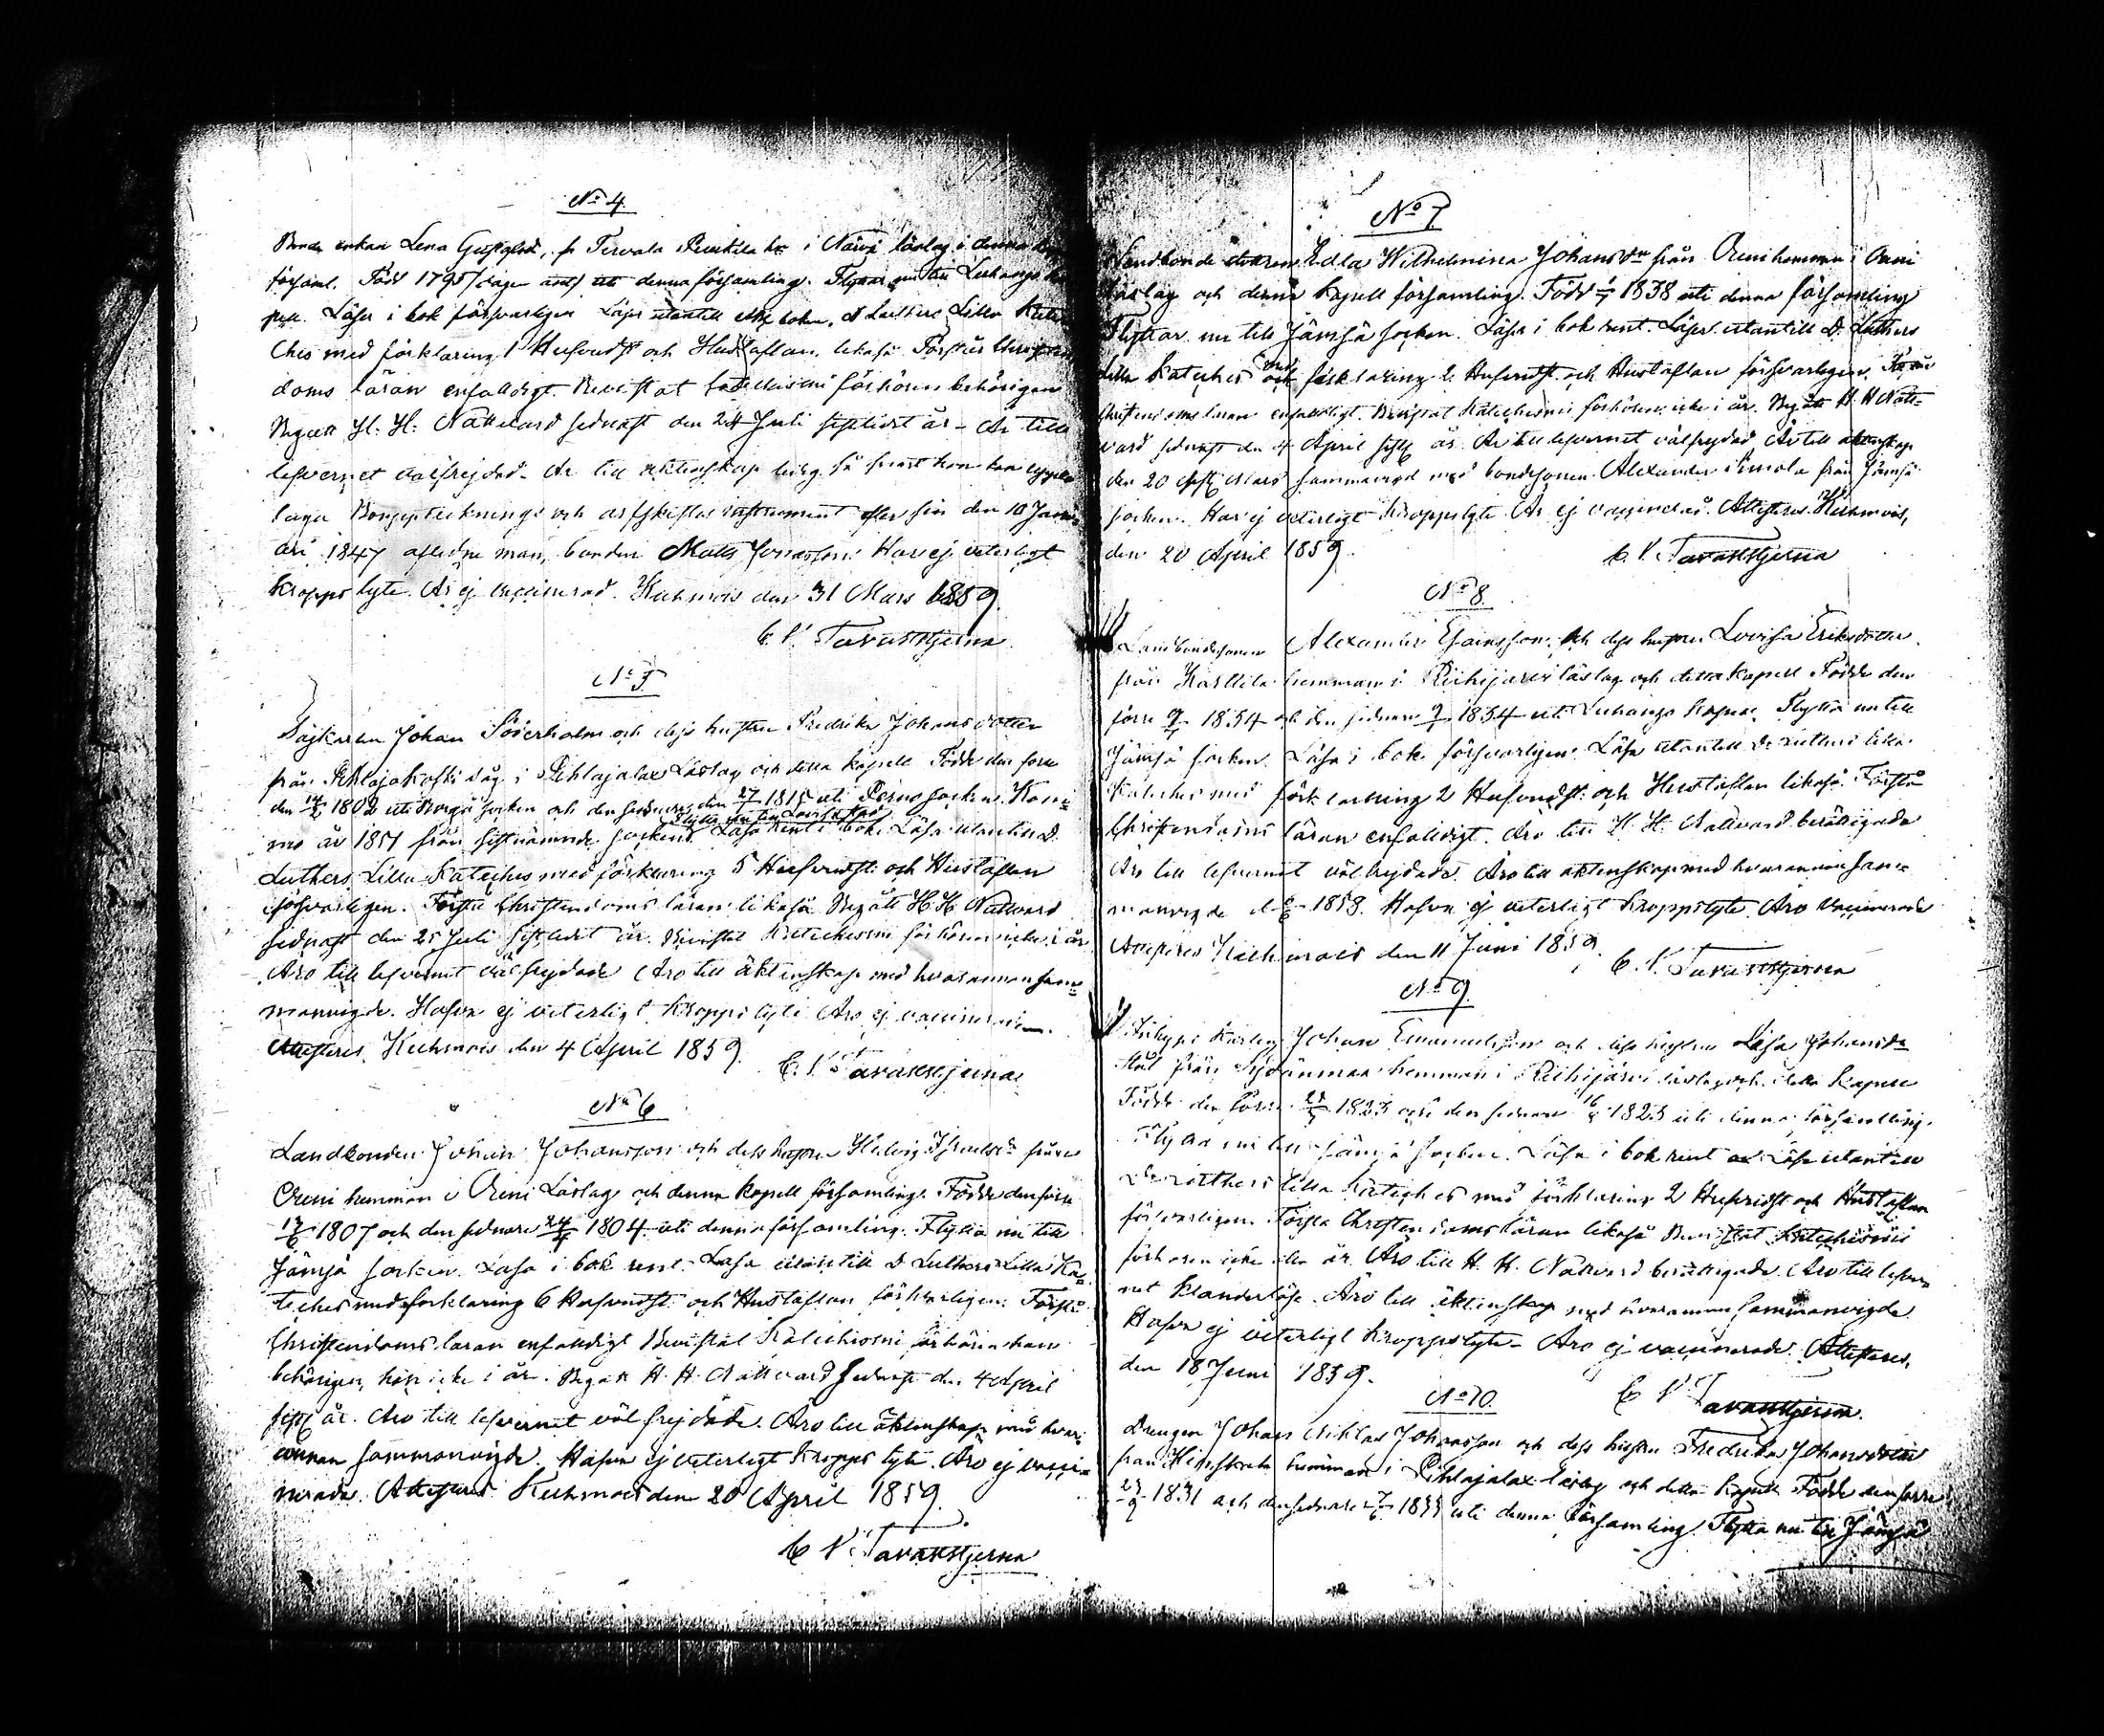 No 4.
Bonde enkan Lena Gustafsdr, fr. Tervala i Närvä läslag i denna
församl. Född 1795 (dagen ) uti denna församling. Flyttar nu till Luhango
pell. Läser i bok försvarligen Läser utantill boken, D Luthers Lilla Kate
ches med förklaring 1 Hufvudst och Hustaflan, likaså Förstår Christen
doms läran enfaldigt. Bevistat Catechismi förhören behörigen
Begått H. H. Nattvard sednast den 24 Juli sistlidet år - Är till
lefvernet välfrejdad - Är till äktenskap ledig så snart hon kan uppte
laga Bouppteckning och arfskiftes instrument efter sin den 10 Janu
ari 1847 aflidne man, bonden Matts Jonasson. Har ej veterligt
kroppslyte. Är ej vaccinerad. Kuhmois den 31 Mars 1859.
C. V. Tavaststjerna
No 5
Sågkarlen Johan Söderholm och dess hustru Fredrika Johansdotter
från Pihlajakoski såg i Pihlajalax Läslag och detta kapell Född den förre
den 1802 uti Borgå socken och den sednare den 27 1815 uti Perno socken. Kom=
Flytta nu till Lovisa stad
mo år 1851 från sistnämnde socken. Läsa rent i bok. Läsa utantill D.
Luthers Lilla Kateches med förklaring 5 Hufvudst: och Hustaflan
försvarligen. Förstå Christendoms läran likaså Begått H. H. Nattvard
sednast den 25 Juli sistledit år. Bevistat Katechismi förhören icke i år
Äro till lefvernet välfrejdade Äro till äktenskap med hvarannan sam=
manvigde. Hafva ej veterligt kroppslyte Äro ej vaccinerade.
Attesteras. Kuhmois den 4 April 1859.
C. V. Tavaststjerna
No 6
Landbonden Johan Johansson och dess hustru Hedvig från
Oreni hemman i Oreni Läslag och denna kapell församling. Födde den förre
17/6 1807 och den sednare 24 1804 uti denna församling. Flytta nu till
Jämsä socken. Läsa i bok rent. Läsa utantill D Luthers Lilla Ka=
teches med förklaring 6 Hufvudst: och Hustaflan försvarligen. Förstå
Christendoms läran enfaldigt Bevistat Katechismi förhören han
behörigen, hon icke i år. Begått H. H. Nattvard sednast den 4 April
sistl. år. Äro till lefvernet välfrejdade. Äro till äktenskap med hvar=
annan sammanvigde. Hafva ej veterligt kropps lyte. Äro ej vacci=
nerade. Attesteras. Kuhmois den 20 April 1859.
C V. Tavaststjerna
No 7
Landbonde Edla Wilhelmina Johansdr från Oreni hemman i Oreni
läslag och denna kapell församling. Född 1838 uti denna församling
Flyttar nu till Jämsä socken. Läser i bok rent. Läser utantill D. Luthers
Lilla Kateches med förklaring 2 Hufvudst. och Hustaflan försvarligen. Förstår
Christendoms läran enfaldigt. Bevistat Katechismi förhören icke i år. Begått H. H Natt=
vard sednast den 4 April sistl. år. Är till lefvernet välfrejdad Är till äktenskap
den 20 sistl. Mars sammanvigd med bondesonen Alexander från Jämsä
socken. Har ej veterligt kroppslyte. Är ej vaccinerad. Attesteras. Kuhmois,
den 20 April 1859.
C. V. Tavaststjerna
No 8.
Landbondesonen Alexander Esaiasson och dess hustru Lovisa Eriksdotter
från Karttila hemman i Riihijärvi läslag och detta kapell Födde den
förre 9 1834 och den sednare 9 1834 uti Luhango kapell. Flytta nu till
Jämsä socken. Läsa i bok försvarligen. Läsa utantill Dr Luthers Lilla
Kateches med förklaring 2 Hufvudst: och Hustaflan likaså. Förstå
Christendoms läran enfaldigt. Äro till H. H. Nattvard berättigade
Äro till lefvernet välfrejdade. Äro till äktenskap med hvarannan sam=
manvigde d. 1858. Hafva ej veterligt kroppslyte. Äro vaccinerade
Attesteras Kuhmois den 11 Juni 1859.
C. V. Tavaststjerna
No 9.
Johan Emanuelsson och dess hustru Lisa Johansdr
från Sydänmaa hemman i Riihijärvi läslag och detta kapell
Födde den förre 1823 och den sednare 16 1823 uti denna församling.
Flytta nu till Jämsä socken. Läsa i bok rent Läsa utantill
Dr Luthers Lilla Kateches med förklaring 2 Hufvudst och Hustaflan
försvarligen. Förstå Christendoms läran likaså Bevistat Katechismi
förhören icke i år. Äro till H. H. Nattvard berättigade. Äro till lefver
net klanderlöse. Äro till äktenskap med hvarannan sammanvigde.
Hafva ej veterligt kroppslyte. Äro ej vaccinerade. Attesteras,
den 18 Juni 1859.
C V. Tavaststjerna.
No 10.
Drengen Johan Niklas Johansson och dess hustru Fredrika Johansdotter
från hemman i Pihlajalax läslag och detta kapell Födde den förre
27/9 1831 och den sednare 1835 uti denna församling. Flytta nu till Jämsä